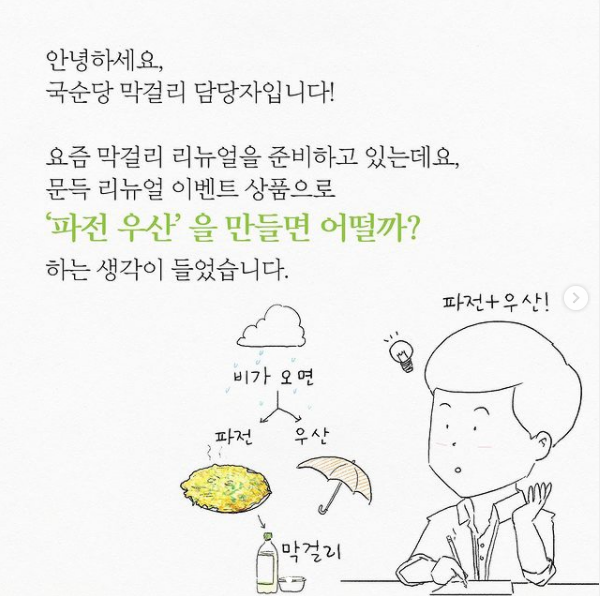 안녕하세요,
국순당 막걸리 담당자입니다!
요즘 막걸리 리뉴얼을 준비하고 있는데요,
문득 리뉴얼 이벤트 상품으로
‘파전 우산’ 을 만들면 어떨까?
하는 생각이 들었습니다.
파전+우산!
비가 오면
파전
우산
막걸리